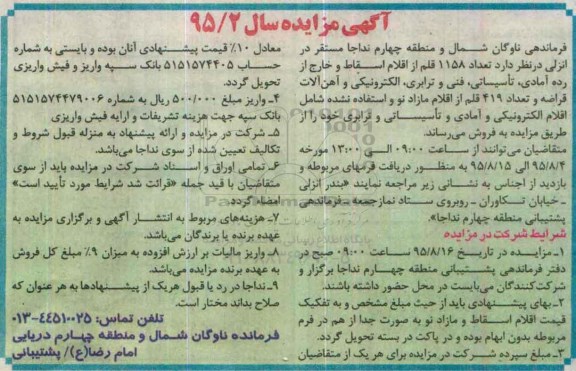 آگهی مزایده سال ۹۵/۲
فرماندهی ناوگان شمال و منطقه چهارم نداجا مستقر در
انزلی درنظر دارد تعداد ۱۱۵۸ قلم از اقلام اسقاط و خارج از
رده آمادی، تأسیساتی، فنی و ترابری، الکترونیکی و آهن‌آلات
قراضه و تعداد ۴۱۹ قلم از اقلام مازاد نو و استفاده نشده شامل
اقلام الکترونیکی و آمادی و تأسیساتی و ترابری خود را از
طریق مزایده به فروش می‌رساند.
متقاضیان می‌توانند از ساعت ۰۹:۰۰ الی ۱۳:۰۰ مورخه
۹۵/۸/۴ الی ۹۵/۸/۱۵ به منظور دریافت فرمهای مربوطه و
بازدید از اجناس به نشانی زیر مراجعه نمایند «بندر انزلی
ـ خیابان تکاوران ـ روبروی ستاد نمازجمعه ـ فرماندهی
پشتیبانی منطقه چهارم نداجا».
شرایط شرکت در مزایده
۱ـ مزایده در تاریخ ۹۵/۸/۱۶ ساعت ۰۹:۰۰ صبح در
دفتر فرماندهی پشتیبانی منطقه چهارم نداجا برگزار و
شرکت‌کنندگان می‌بایست در محل حضور داشته باشند.
۲ـ بهای پیشنهادی باید از حیث مبلغ مشخص و به تفکیک
قیمت اقلام اسقاط و مازاد نو به صورت جدا از هم در فرم
مربوطه بدون ابهام بوده و در پاکت در بسته تحویل گردد.
۳ـ مبلغ سپرده شرکت در مزایده برای هر یک از متقاضیان
معادل ۱۰٪ قیمت پیشنهادی آنان بوده و بایستی به شماره
حساب ۵۱۵۱۵۷۴۴۰۵ بانک سپه واریز و فیش واریزی
تحویل گردد.
۴ـ واریز مبلغ ۵۰۰/۰۰۰ ریال به شماره ۵۱۵۱۵۷۴۴۷۹۰۰۶
بانک سپه جهت هزینه تشریفات و ارایه فیش واریزی
۵ـ شرکت در مزایده و ارائه پیشنهاد به منزله قبول شروط و
تکالیف تعیین شده از سوی نداجا می‌باشد.
۶ـ تمامی اوراق و اسناد شرکت در مزایده باید از سوی
متقاضیان با قید جمله «قرائت شد شرایط مورد تأیید است»
امضا گردد.
۷ـ هزینه‌های مربوط به انتشار آگهی و برگزاری مزایده به
عهده برنده یا برندگان می‌باشد.
۸ـ واریز مالیات بر ارزش افزوده به میزان ۹٪ مبلغ کل فروش
به عهده برنده مزایده می‌باشد.
۹ـ نداجا در رد یا قبول هریک از پیشنهادها به هر عنوان که
صلاح بداند مختار است.
تلفن تماس: ۴۴۵۱۰۰۲۵-۰۱۳
فرمانده ناوگان شمال و منطقه چهارم دریایی
امام رضا(ع)/ پشتیبانی